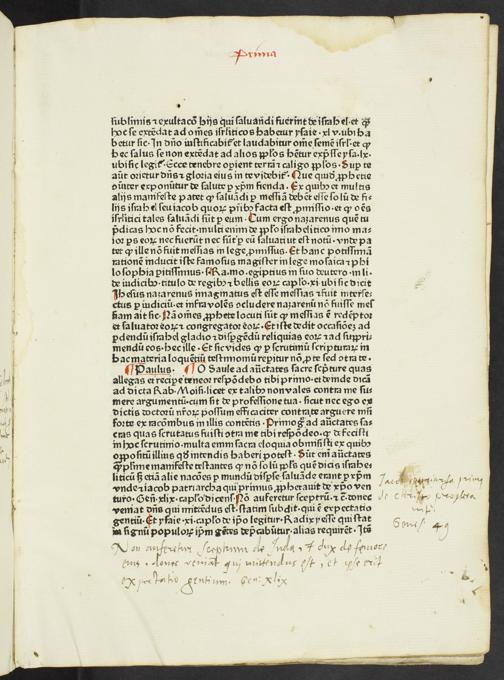 Prima
sublimis ⁊ exultacō hn̄s qui saluandi fuerint de israhel. et q̄
hoc se extēdat ad om̄es isrliticos habetur ysaie. xlv. vbi ha
betur sic. In dn̄o iustificabit̄ et laudabitur om̄e semē isrl. et q̄
hec salus se non extēdat ad alios pplōs hētur exp̄sse ysa. lx.
vbi sic legit̄. Ecce tenebre opient terrā ⁊ caligo pplōs. Sup te
aūt orietur dn̄s ⁊ gloria eius in te videbit̄. Que quidē prophetie
cōiter exponūtur de salute p xp̄m fienda. Ex quibꝰ et multis
alijs manifeste patet ꝙ saluādi p messiā debēt esse solū de fi
lijs israhel seu iacob quorū prībꝰ facta est promissio. et ꝙ oēs
isrlitici tales saluādi sūt p eum. Cum ergo nazarenus que sū
pdicas hoc nō fecit. multi enim de pplo israhelitico imo mai
or ps eorū nec fuerūt nec sūt p eū saluati vt est notū. vnde pa
tet ꝙ ille nō fuit messias in lege promissus. Et hanc potissimā
rationē inducit iste famosus magister in lege mosaica ⁊ phi
losophia pitissimus. Ra. mo. egiptius in suo deutero. in li.
de iudicibꝰ. titulo de regibꝰ ⁊ bellis eorū caplo. xi. vbi sic dicit
Jhesus nazarenus imaginatus est esse messias ⁊ fuit interfe
ctus p iudiciū. et infra volēs ocludere nazarenū nō fuisse mes
siam ait sic. Nā om̄es prophete locuti sūt ꝙ messias ē redēptor
et saluator eorū ⁊ congregator eorū. Et iste dedit occasiōez ad
pdendū israhel gladio ⁊ dispgēdū reliquias eorū ⁊ ad suppri
mendū eos. hec ille. Et sic vides ꝙ p scrutiniū scripturarū in
hac materia loquētiū testimoniū repitur nō pro te sed cōtra te.
Paulus. O Saule ad auctates sacre scripture quas
allegas et recipe teneor respōdebo tibi primo. et demde dicā
ad dicta Rab. Moisi. licet ex talibꝰ non vales contra me su
mere argumētū. cum sit de professione tua. sicut nec ego ex
dictis doctorū nrōrum possum efficaciter contra te arguere nisi
forte ex racōnibus in illis contētis. Primo g̊ ad auctates sa
cras quas scrutatus fuisti cōtra me tibi respōdeo. ꝙ defecisti
in hoc scrutinio. multa enim sacra eloquia obmisisti ex quibꝰ
oppositū illius qd̄ intendis haberi potest. Sūt eni auctates
qplime manifeste testantes ꝙ nō solū ppls que dicis israhe
liticū sꝫ etiā alie nacōes p mundū dispse saluāde erant p xp̄m
vnde ⁊ iacob patriarcha qui primus prophetauit de xp̄o ven
turo. Gen. xlix. caplo dicens. Nō auferetur sceptrū. ⁊ c̄. donec
veniat dn̄s qui mitendus est. statim subdit. qui ē expectatio
gentiū. Et ysaie. xi. caplo de ip̄o legitur. Radix yesse qui stat
in signū populorū. ip̄m gētes depcābūtur. alias requirēt. Itē
de christo propheta
Genes. 49
Non auferetur sceptrum de Juda, et dux de femore
eius, donec veniat qui mittendus est, et ipse erit
expectatio gentium. Gen: xlix